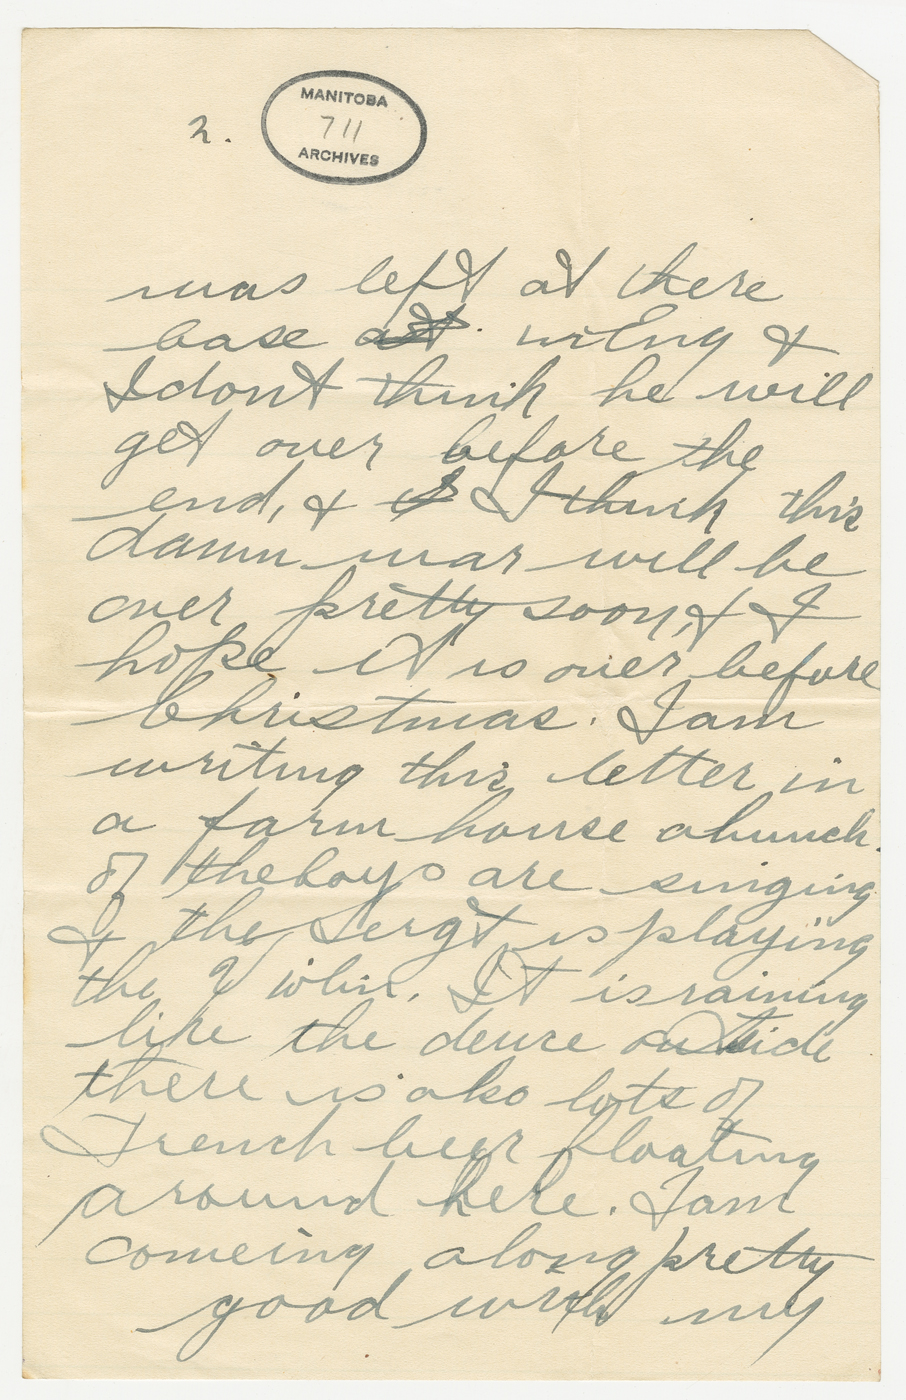 2.
MANITOBA
711
ARCHIVES
was left at there
base in Eng &
I dont think he will
get over before the
end, & I think this
damn war will be
over pretty soon, & I
hope it is over before
Christmas. I am
writing this letter in
a farm house a bunch
of the boys are singing
& the Sergt is playing
the Violin. It is raining
like the deuce outside
there is also lots of
French beer floating
around here. I am
comeing along pretty
good with my